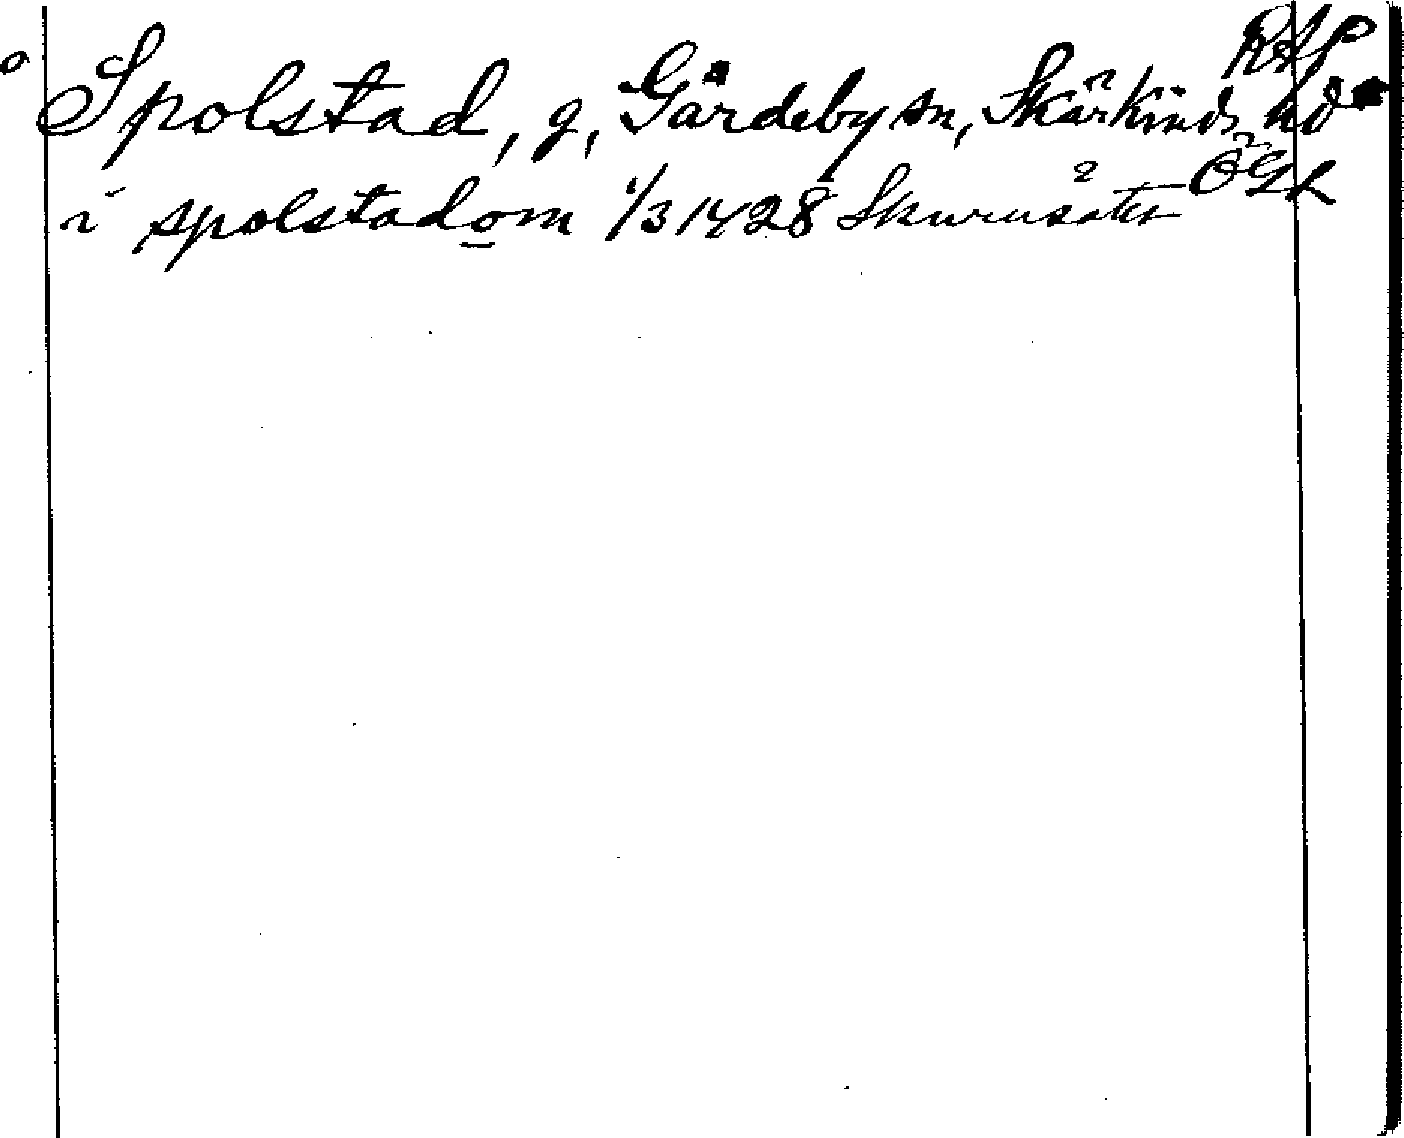 RAP
Spolstad, g, Gårdeby sn, Skärkinds hd
ÖGL
i spolstadom 1/3 1428 Skurusäter